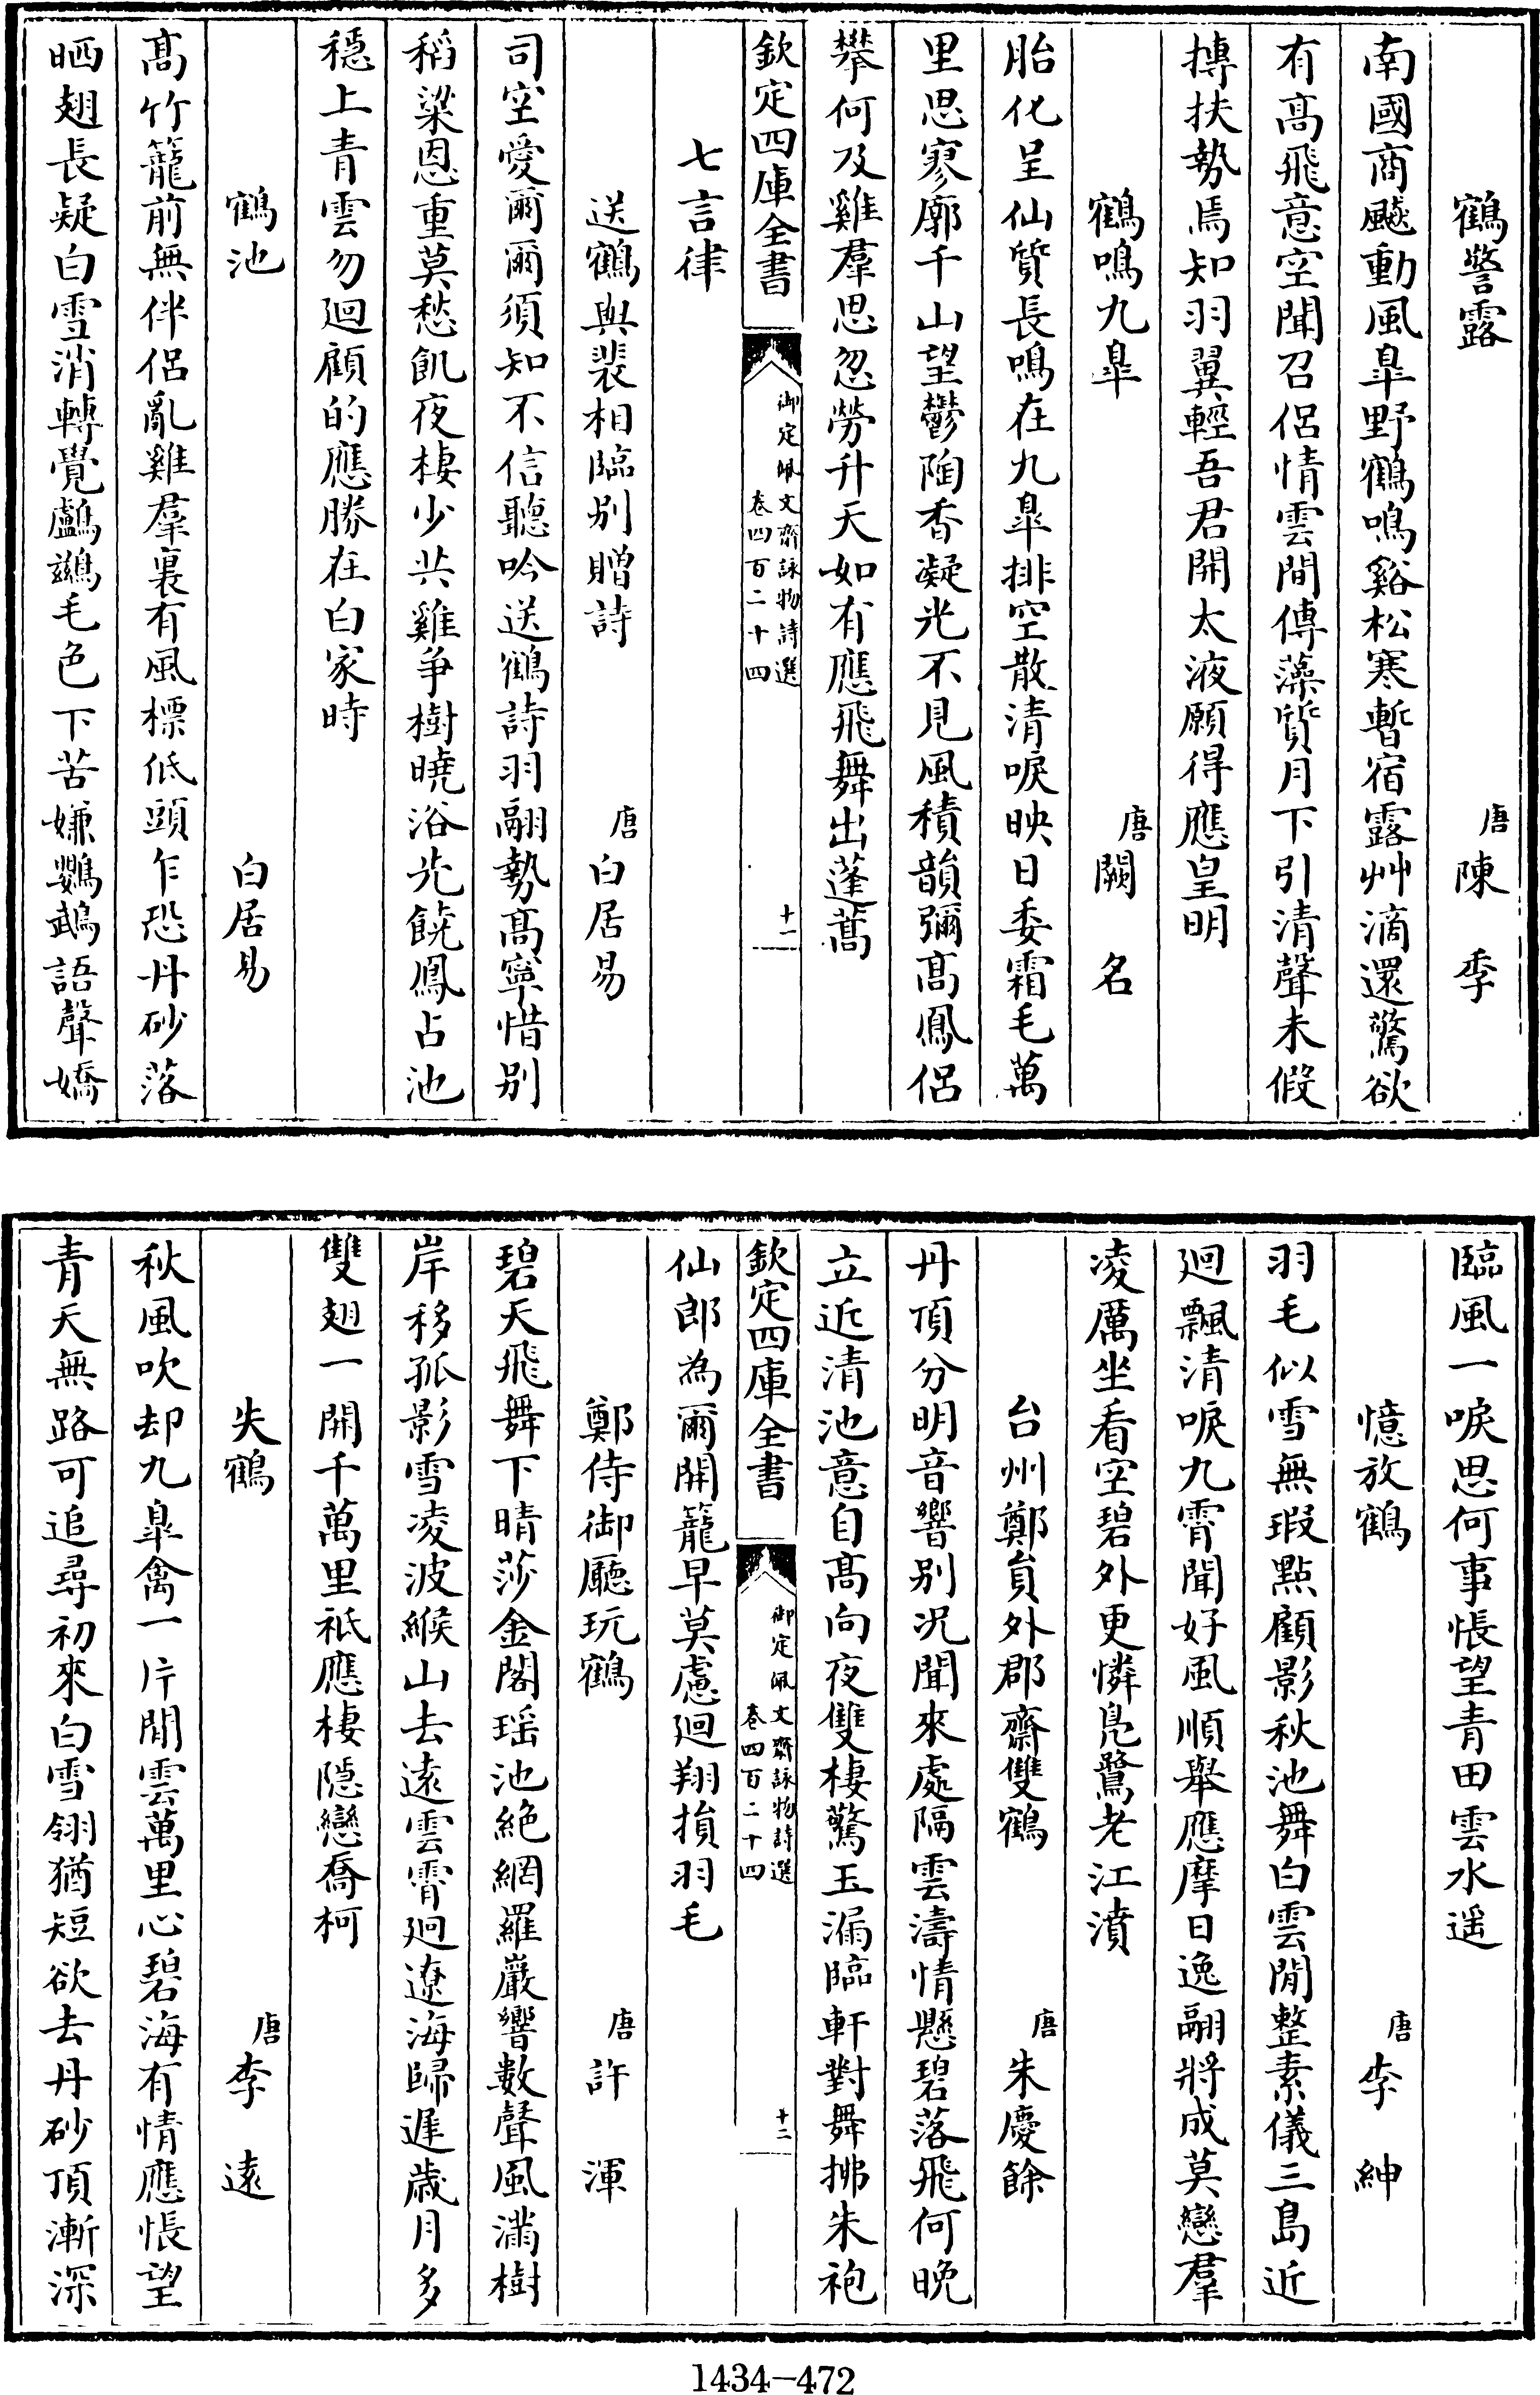 鶴警露　唐陳　季
南國商飈動風臯野鶴鳴谿松寒暫宿露艸滴還驚欲
有髙飛意空聞召侶情雲間傳藻質月下引清聲未假
摶扶勢焉知羽翼輕吾君開太液願得應皇明
鶴鳴九臯　唐闕　名
胎化呈仙質長鳴在九臯排空散清唳映日委霜毛萬
里思寥廓千山望鬱陶香凝光不見風積韻彌髙鳳侶
攀何及雞羣思忽勞升天如有應飛舞出蓬蒿
欽定四庫全書　御定佩文齋詠物詩選　卷四百二十四　十一
七言律
送鶴與裴相臨别贈詩　唐白居易
司空愛爾爾須知不信聽吟送鶴詩羽翮勢髙寧惜别
稻粱恩重莫愁飢夜棲少共雞爭樹曉浴先饒鳳占池
穩上青雲勿廻顧的應勝在白家時
鶴池　白居易
髙竹籠前無伴侶亂雞羣裏有風標低頭乍恐丹砂落
晒翅長疑白雪消轉覺鸕鷀毛色下苦嫌鸚鵡語聲嬌
臨風一唳思何事悵望青田雲水遥
憶放鶴　唐李　紳
羽毛似雪無瑕點顧影秋池舞白雲閒整素儀三島近
廻飄清唳九霄聞好風順舉應摩日逸翮將成莫戀羣
凌厲坐看空碧外更憐鳬鷺老江濆
台州鄭貟外郡齋雙鶴　唐朱慶餘
丹頂分明音響别况聞來處隔雲濤情懸碧落飛何晚
立近清池意自髙向夜雙棲驚玉漏臨軒對舞拂朱袍
欽定四庫全書　御定佩文齋詠物詩選　卷四百二十四　十二
仙郎為爾開籠早莫慮廻翔損羽毛
鄭侍御廳玩鶴　唐許　渾
碧天飛舞下晴莎金閣瑶池絶網羅巖響數聲風滿樹
岸移孤影雪凌波緱山去遠雲霄廻遼海歸遲歲月多
雙翅一開千萬里祇應棲隠戀喬柯
失鶴　唐李　遠
秋風吹却九臯禽一片閒雲萬里心碧海有情應悵望
青天無路可追尋初來白雪翎猶短欲去丹砂頂漸深
1434-472